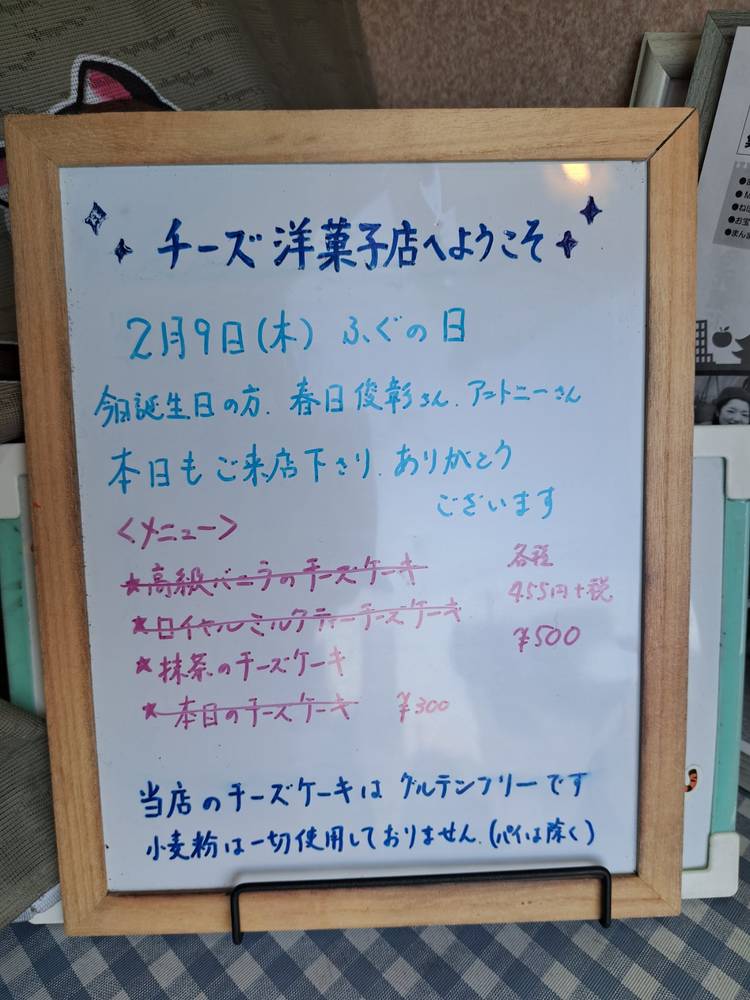 チーズ洋菓子店へようこそ
2月9日(木) ふぐの日
今日誕生日の方. 春日俊彰さん. アントニーさん
本日もご来店下さり. ありがとう
ございます
<メニュー>
★高級バニラのチーズケーキ
各種
455円+税
★ロイヤルミルクティーチーズケーキ
¥500
★抹茶のチーズケーキ
★本日のチーズケーキ ¥300
当店のチーズケーキは グルテンフリーです
小麦粉は一切使用しておりません.(パイは除く)